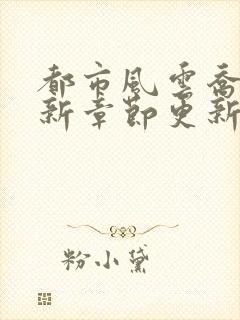 都市風雲喬
新章節更新
粉小黛